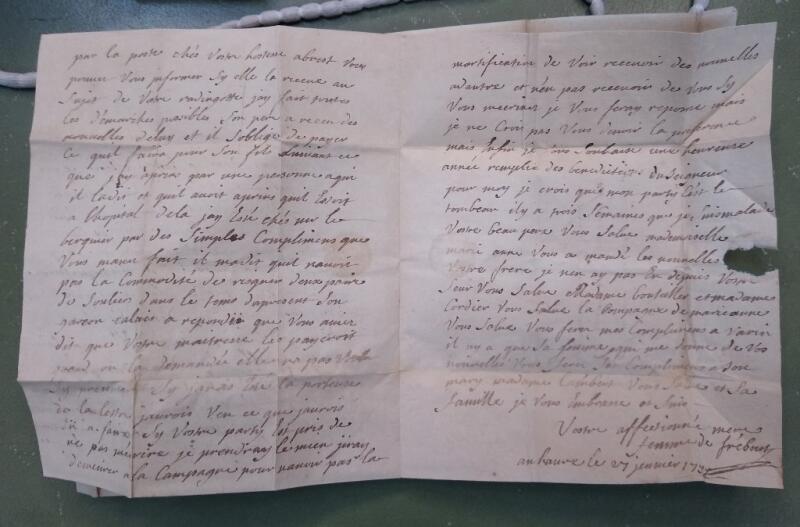 par la poste chés Vostre hostesse abrest Vous
pouvez Vous informer Sy elle la receue au
Sujet de Votre radingotte jay fait toutes
les démarches posibles Son pere a receu des
nouvelles deluy et il Soblige de payer
ce quil faira pour Son fils Suivant ce
que jay apris par une personne aqui
il ladit et quil avoit apris quil Estoit
a lhopital dela jay Esté chés mr le
berquier par des Simples Complimens que
Vous mavez fait il madit quil navoit
pas la Commodité de risquer deux paire
de Souliers dans le tems dapresent Son
garcon calais a repondu que Vous aviez
dit que Votre maitresse les payeroit
quand on la demandée elle na pas Voulu
Sy javois Esté la porteuse
de la lettre jaurois Veu ce que jaurois
eu a faire Sy Vostre party Est pris de
ne pas mecrire je prendray le mien jiray
demeurer a la Campagne pour navoir pas la
mortification de Voir recevoir des nouvelles
adautre et nen pas recevoir de Vous Sy
Vous mecrivez je Vous feray reponse mais
je ne Crois pas Vous devoir la preference
mais Enfin je Vous Souhaite une heureuse
année remplie des benedictions du Seigneur
pour moy je crois que mon party Est le
tombeau il y a trois Semaines que je suis malade
Votre beau pere Vous Salue mademoiselle
marie anne Vous a mandé les nouvelles
Votre frere je nen ay pas Eu depuis Votre
Seur Vous Salue Madame et madame
Cordier Vous Salue la Compagne de marieanne
Vous Salue Vous ferez mes Complimens a Varin
il ny a que Sa femme qui me donne de Vos
nouvelles Vous ferez Ses Complimens a Son
mary madame Lambert Vous Salue et Sa
famille je Vous Embrasse et Suis
Vostre affectionnée mere
femme de
au havre le 27 jenvier